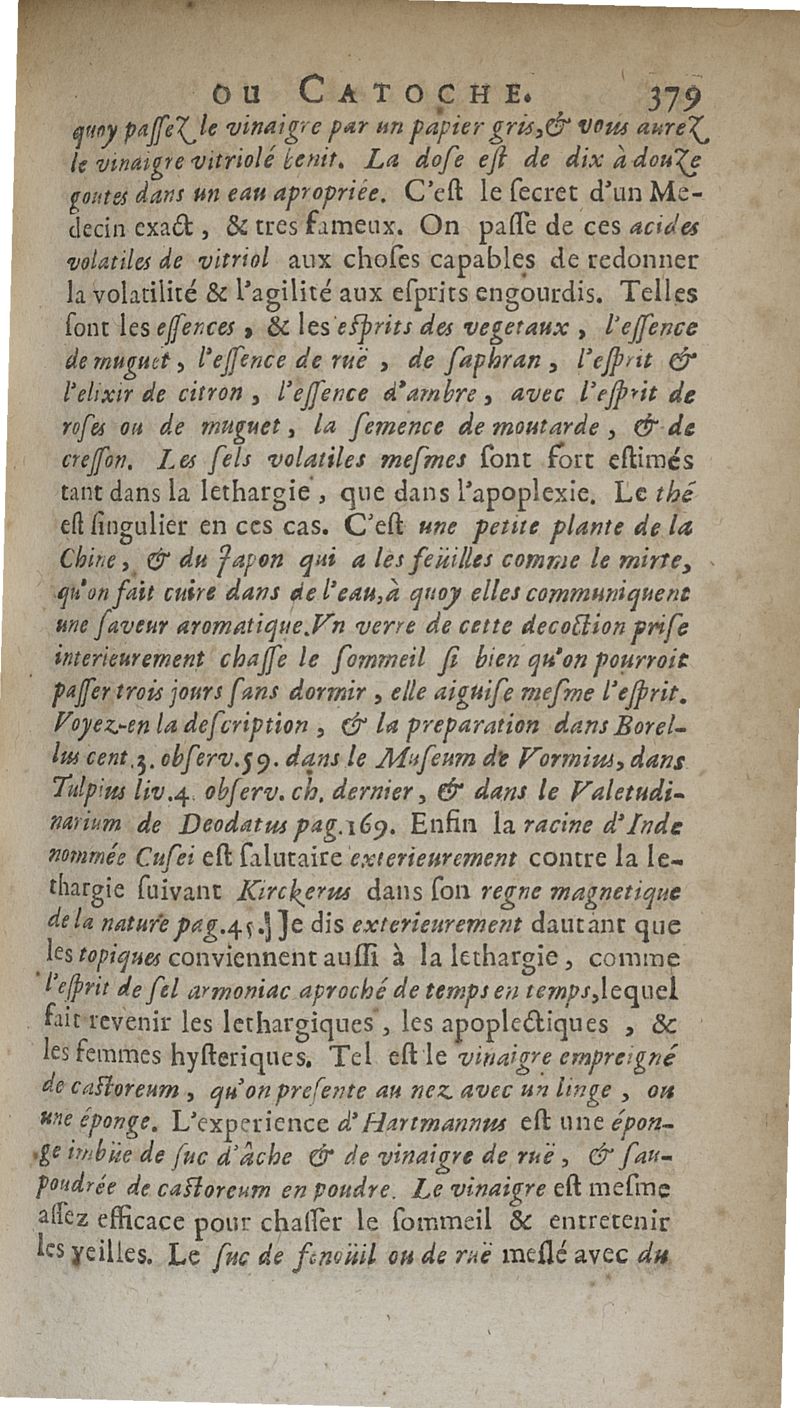 ou CATOCHE. 379
quoy passez le vinaigre par un papier gris, & vous aurez
le vinaigre vitriolé benit. La dose est de dix à douze
goutes dans un eau apropriée. C'est le secret d'un Me-
decin exact, & tres fameux. On passe de ces acides
volatiles de vitriol aux choses capables de redonner
la volatilité & l'agilité aux esprits engourdis. Telles
sont les essences, & les esprits des vegetaux, l'essence
de muguet, l'essence de ruë, de saphran, l'esprit &
l'elixir de citron, l'essence d'ambre, avec l'esprit de
roses ou de muguet, la semence de moutarde, & de
cresson. Les sels volatiles mesmes sont fort estimés
tant dans la lethargie, que dans l'apoplexie. Le thé
est singulier en ces cas. C'est une petite plante de la
Chine, & du Japon qui a les feüilles comme le mirte,
qu'on fait cuire dans de l'eau, à quoy elles communiquent
une saveur aromatique. Vn verre de cette decoction prise
interieurement chasse le sommeil si bien qu'on pourroit
passer trois jours sans dormir, elle aiguise mesme l'esprit.
Voyez-en la description, & la preparation dans Borel-
lus cent.3. observ.59. dans le Museum de Vormius, dans
Tulpius liv.4. observ. ch. dernier, & dans le Valetudi-
narium de Deodatus pag.169. Enfin la racine d'Inde
nommée Cusei est salutaire exterieurement contre la le-
thargie suivant Kirckerus dans son regne magnetique
de la nature pag.45.] Je dis exterieurement dautant que
les topiques conviennent aussi à la lethargie, comme
l'esprit de sel armoniac aproché de temps en temps, lequel
fait revenir les lethargiques, les apoplectiques, &
les femmes hysteriques. Tel est le vinaigre empreigné
de castoreum, qu'on presente au nez avec un linge, ou
une éponge. L'experience d'Hartmannus est une épon-
ge imbüe de suc d'âche & de vinaigre de ruë, & sau-
poudrée de castoreum en poudre. Le vinaigre est mesme
assez efficace pour chasser le sommeil & entretenir
les veilles. Le suc de fenoüil ou de ruë meslé avec du